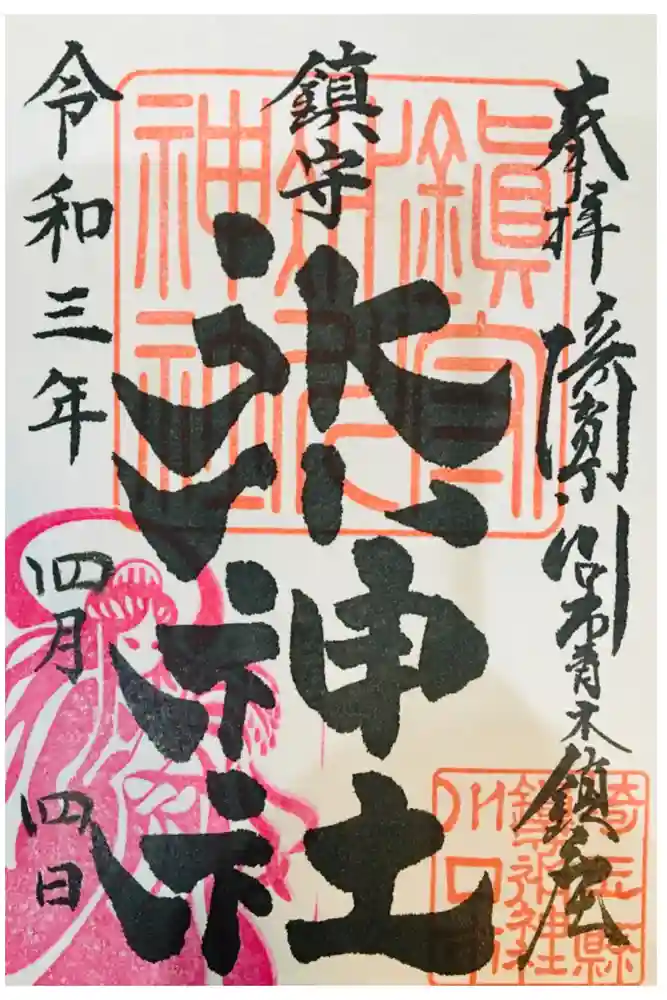 奉拝
川口市青木鎮座
鎮守
氷川神社
令和三年
四月
四日
鎮守
氷川
神社
埼玉縣
鎮守氷川神社
川口市